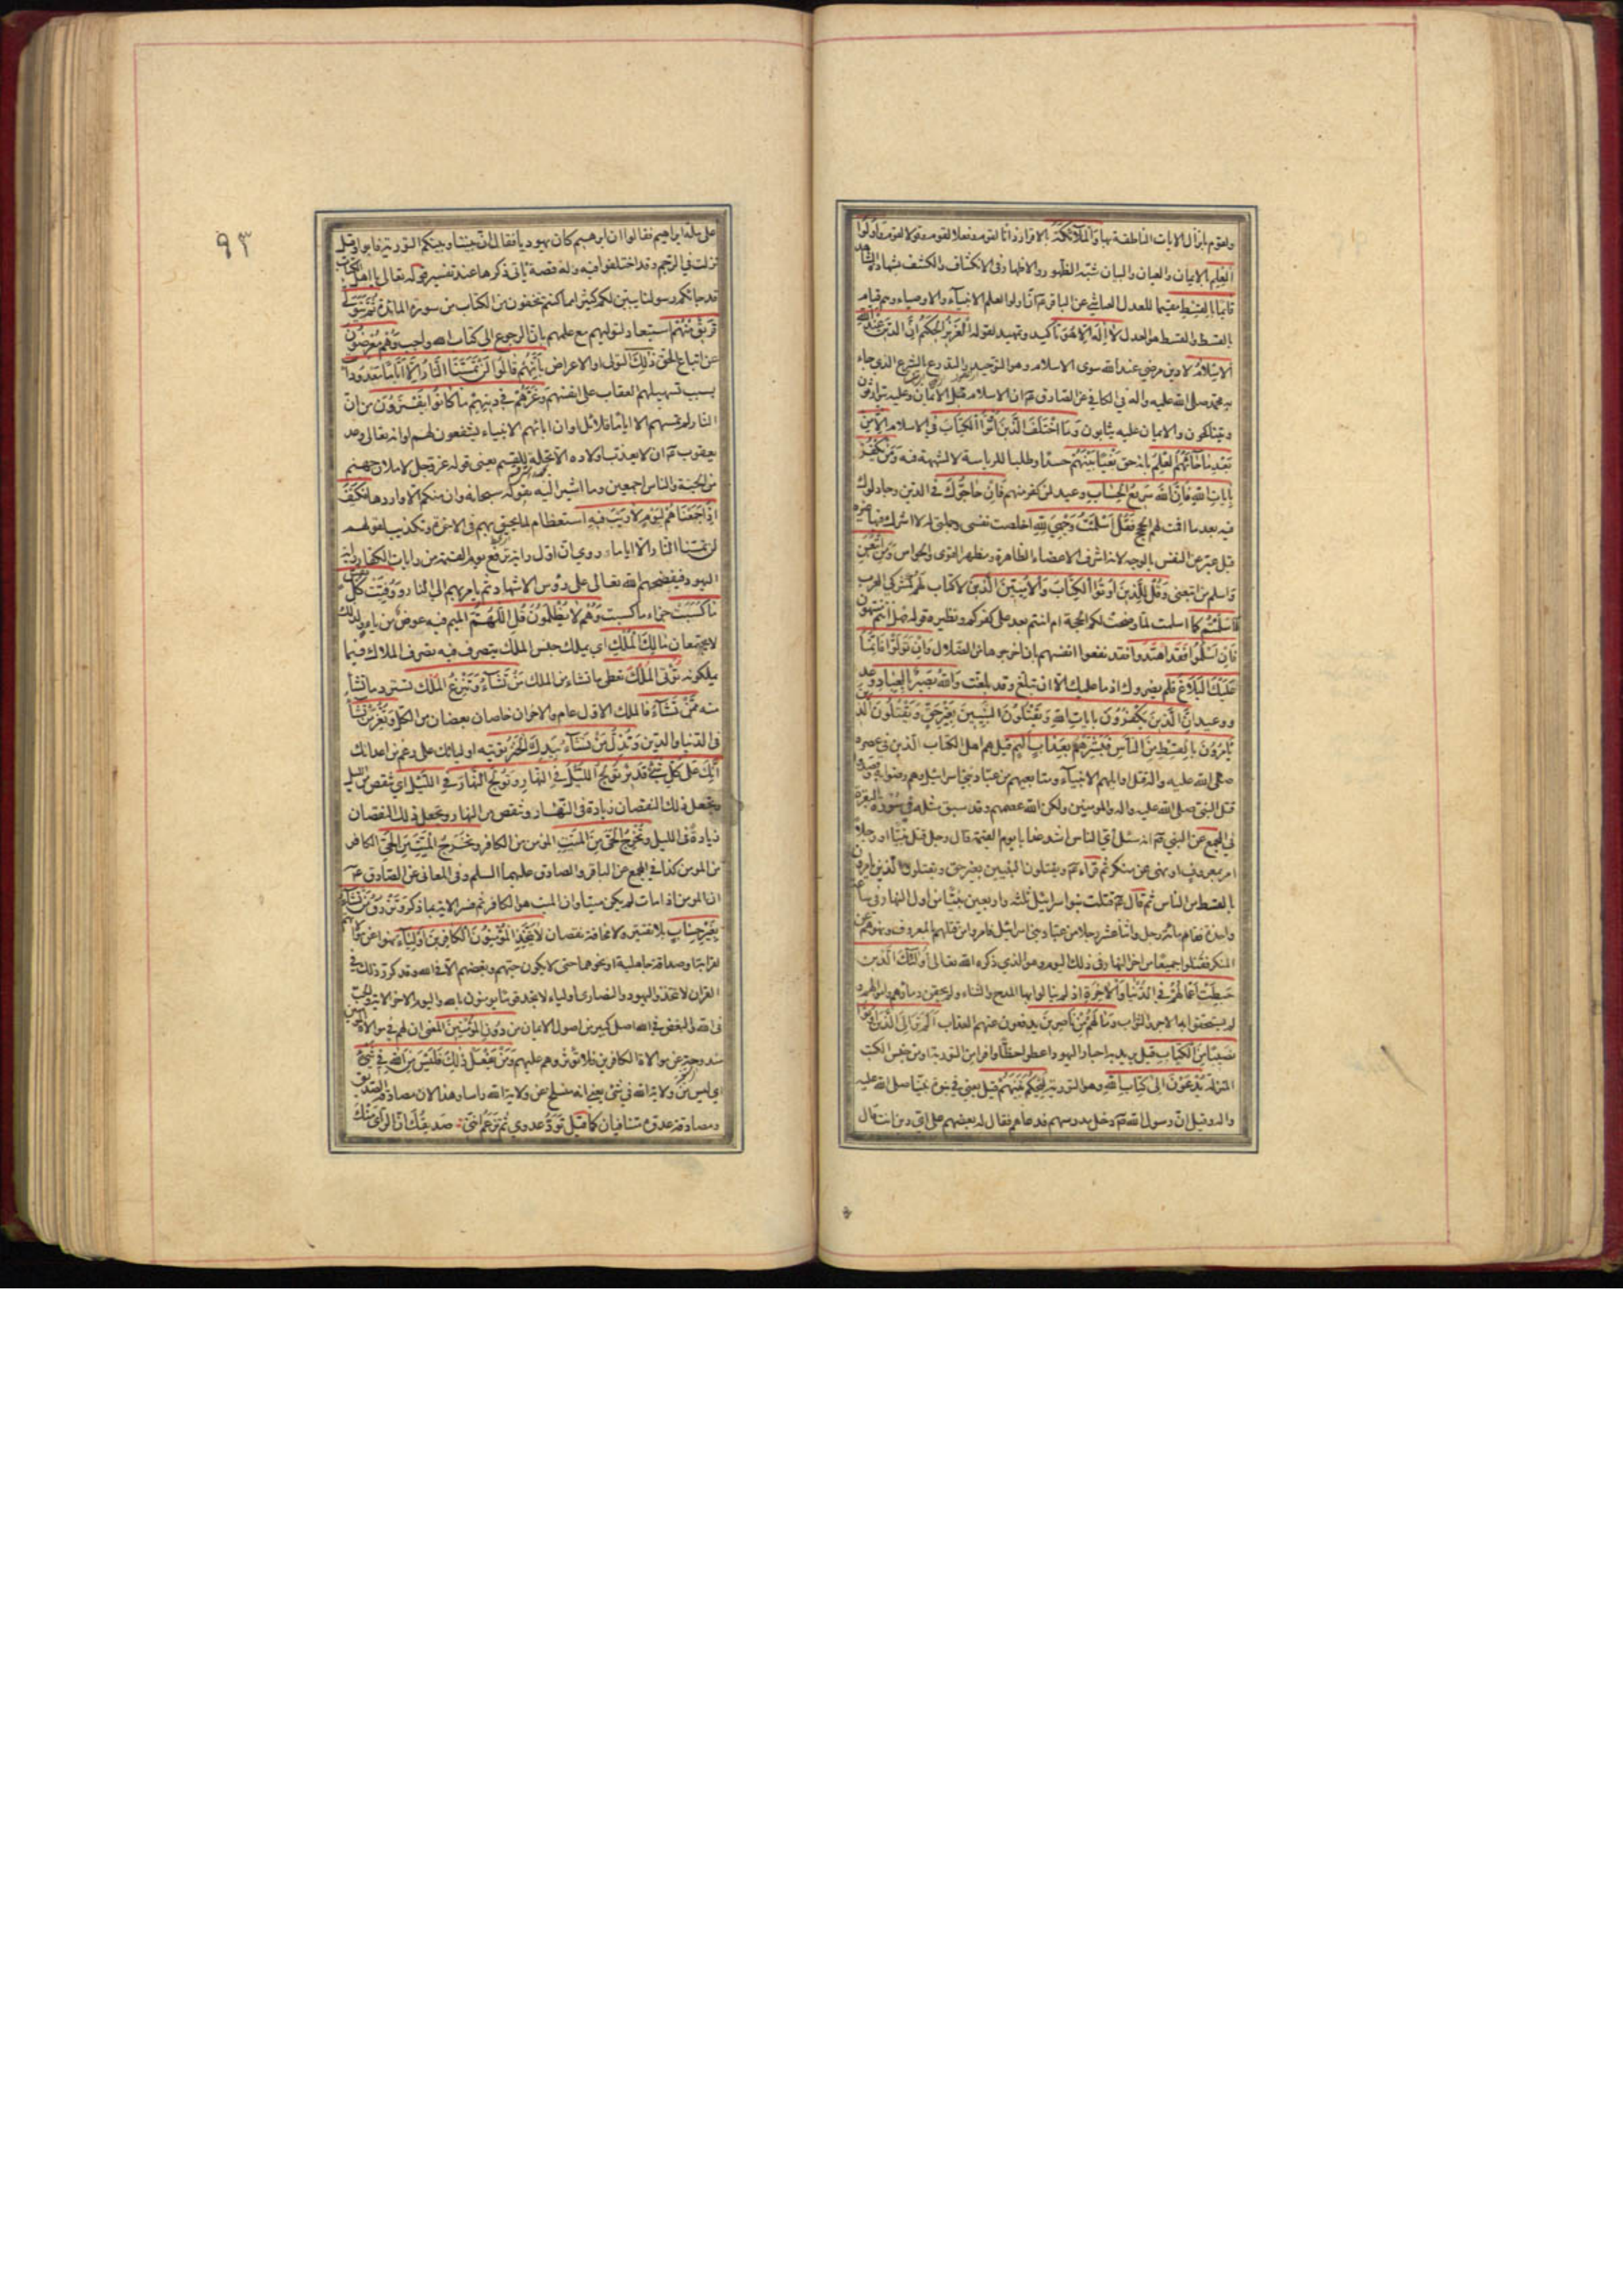 ولقوم بانزال الايات الناطقة بها وَالمَلآئِكَةُ بالاقرار ذاتا لقوم وفعلا لقوم وقولا لقوم وَاُولُوا
العِلمِ بالايمان والعيان والبيان شبّه الظهور والاظهار فى الانكشاف والكشف بشهادة الشاهد
قائِمًا بِالقِسطِ مقيما للعدل العياشي عن الباقر ع ان اولوا العلم الانبياء والاوصياء وهم قيام
بالقسط والقسط هو العدل لا اِلهَ اِلّا هُوَ تاكيد وتمهيد لقوله العَزيزُ الحَكيمُ اِنَّ الدّينَ عِندَ اللهِ
الاِسلامُ لا دين مرضي عند الله سوى الاسلام وهو التوحيد والتدرع بالشرع الذي جاء
به محمد صلى الله عليه واله في الكافي عن الصادق ع ان الاسلام قبل الايمان وعليه يتوارثون
ويتناكحون والايمان عليه يثابون وَمَا اختَلَفَ الَّذينَ اُوتُوا الكِتابَ في الاسلام اِلّا مِن
بَعدِ ما جآئَهُمُ العِلمُ بانه حق بَغيًا بَينَهُم حسدا وطلبا للرياسة لا لشبهة فيه وَمَن يَكفُر
بِاياتِ اللهِ فَاِنَّ اللهَ سَريعُ الحِسابِ وعيد لمن كفر منهم فَاِن حاجّوكَ في الدين وجادلوك
فيه بعد ما اقمت لهم الحجج فَقُل اَسلَمتُ وَجهِيَ لِلّهِ اخلصت نفسي وجملتي له لا اشرك فيها غيره
قيل عبّر عن النفس بالوجه لانه اشرف الاعضاء الظاهرة ومظهر القوى والحواس وَمَنِ اتَّبَعَنِ
واسلم من اتبعني وَقُل لِلَّذينَ اُوتُوا الكِتابَ وَالاُمِّيّينَ الذين لا كتاب لهم كمشركي العرب
ءَاَسلَمتُم كما اسلمت لما وضحت لكم الحجة ام انتم بعد على كفركم ونظيره قوله فهل انتم منتهون
فَاِن اَسلَمُوا فَقَدِ اهتَدَوا فقد نفعوا انفسهم بان اخرجوها من الضلال وَاِن تَوَلَّوا فَاِنَّما
عَلَيكَ البَلاغُ فلم يضروك اذ ما عليك الا ان تبلغ وقد بلغت وَاللهُ بَصيرٌ بِالعِبادِ وعد
ووعيد اِنَّ الَّذينَ يَكفُرُونَ بِاياتِ اللهِ وَيَقتُلُونَ النَّبِيّينَ بِغَيرِ حَقٍّ وَيَقتُلُونَ الَّذينَ
يَأمُرُونَ بِالقِسطِ مِنَ النّاسِ فَبَشِّرهُم بِعَذابٍ اَليمٍ قيل هم اهل الكتاب الذين في عصره
صلى الله عليه واله قتل اوائلهم الانبياء ومتابعيهم من عباد بني اسرائيل وهم رضوا به وقصدوا
قتل النبي صلى الله عليه واله والمومنين ولكن الله عصمهم وقد سبق مثله في سورة البقرة
في المجمع عن النبي ص انه سئل اي الناس اشد عذابا يوم القيمة قال رجل قتل نبيا او رجلا
امر بمعروف او نهى عن منكر ثم قراء ص ويقتلون النبيين بغير حق ويقتلون الذين يامرون
بالقسط من الناس ثم قال ص قتلت بنو اسرائيل ثلثة واربعين نبيّا من اول النهار في ساعة
واحدة فقام مائة رجل واثنا عشر رجلا من عباد بني اسرائيل فامروا من قتلهم بالمعروف ونهوهم عن
المنكر فقتلوا جميعا من اخر النهار في ذلك اليوم وهو الذي ذكره الله تعالى اُولئِكَ الَّذينَ
حَبِطَت اَعمالُهُم فِي الدُّنيا وَالاخِرَةِ اذ لم ينالوا بها المدح والثناء ولم يحقن دماؤهم واموالهم و
لم يستحقوا بها الاجر والثواب وَما لَهُم مِن ناصِرينَ يدفعون عنهم العذاب اَلَم تَرَ اِلَى الَّذينَ اُوتُوا
نَصيبًا مِنَ الكِتابِ قيل يريد به احبار اليهود اعطوا حظا وافرا من التورية او من جنس الكتب
المنزلة يُدعَونَ اِلى كِتابِ اللهِ وهو التورية لِيَحكُمَ بَينَهُم قيل يعني في نبوة نبينا صلى الله عليه
واله وقيل ان رسول الله ص دخل مدرسهم فدعاهم فقال له بعضهم على اي دين انت قال
على ملة ابراهيم فقالوا ان ابرهيم كان يهوديا فقال ان بيننا وبينكم التورية فابوا وقيل
نزلت في الرجم وقد اختلفوا فيه وله قصة ياتي ذكرها عند تفسير قوله تعالى يا اهل الكتاب
قد جائكم رسولنا يبين لكم كثيرا مما كنتم تخفون من الكتاب من سورة المائدة ثُمَّ يَتَوَلّى
فَريقٌ مِنهُم استبعاد لتوليهم مع علمهم بان الرجوع الى كتاب الله واجب وَهُم مُعرِضُونَ
عن اتباع الحق ذلِكَ التولي او الاعراض بِاَنَّهُم قالُوا لَن تَمَسَّنَا النّارُ اِلّا اَيّامًا مَعدُوداتٍ
بسبب تسهيلهم العقاب على انفسهم وَغَرَّهُم في دينِهِم ما كانُوا يَفتَرُونَ من ان
النار لن تمسهم الا اياما قلائل او ان ابائهم الانبياء يشفعون لهم او انه تعالى وعد
يعقوب ع ان لا يعذب اولاده الا تحلة القسم يعنى قوله عز وجل لاملان جهنم
من الجنة والناس اجمعين وما اشير اليه بقوله سبحانه وان منكم الا واردها فَكَيفَ
اِذا جَمَعناهُم لِيَومٍ لا رَيبَ فيهِ استعظام لما يحيق بهم في الاخرة وتكذيب لقولهم
لن تمسنا النار الا اياما روي ان اول راية ترفع يوم القيمة من رايات الكفار راية
اليهود فيفضحهم الله تعالى على رؤس الاشهاد ثم يامر بهم الى النار وَوُفِّيَت كُلُّ نَفسٍ
ما كَسَبَت جزاء ما كسبت وَهُم لا يُظلَمُونَ قُلِ اللّهُمَّ الميم فيه عوض من يا ولذلك
لا يجتمعان مالِكَ المُلكِ اي يملك جنس الملك يتصرف فيه تصرف الملاك فيما
يملكونه تُؤتِي المُلكَ تعطي ما تشاء من الملك مَن تَشآءُ وَتَنزِعُ المُلكَ تسترد ما تشاء
منه مِمَّن تَشآءُ فالملك الاول عام والاخران خاصان بعضان من الكل وَتُعِزُّ مَن تَشآءُ
في الدنيا والدين وَتُذِلُّ مَن تَشآءُ بِيَدِكَ الخَيرُ تؤتيه اوليائك على رغم من اعدائك
اِنَّكَ عَلى كُلِّ شَيءٍ قَديرٌ تُولِجُ اللَّيلَ فِي النَّهارِ وَتُولِجُ النَّهارَ فِي اللَّيلِ اي تنقص من الليل
وتجعل ذلك النقصان زيادة في النهار وتنقص من النهار وتجعل ذلك النقصان
زيادة في الليل وَتُخرِجُ الحَيَّ مِنَ المَيِّتِ المومن من الكافر وَتُخرِجُ المَيِّتَ مِنَ الحَيِّ الكافر
من المومن كذا في المجمع عن الباقر والصادق عليهما السلم وفي المعاني عن الصادق ع
ان المومن اذا مات لم يكن ميتا وان الميت هو الكافر ثم فسر الاية بما ذكر وَتَرزُقُ مَن تَشآءُ
بِغَيرِ حِسابٍ بلا تقتير ولا مخافة نقصان لا يَتَّخِذِ المُؤمِنُونَ الكافِرينَ اَولِيآءَ نهوا عن موالاتهم
لقرابة او صداقة جاهلية او نحوهما حتى لا يكون حبهم وبغضهم الا في الله وقد كرر ذلك في
القران لا تتخذوا اليهود والنصارى اولياء لا تجد قوما يؤمنون بالله واليوم الاخر الاية والحب
في الله والبغض في الله اصل كبير من اصول الايمان مِن دُونِ المُؤمِنينَ المعنى ان لهم في موالاة المؤمنين
مندوحة عن موالاة الكافرين فلا تؤثروهم عليهم وَمَن يَفعَل ذلِكَ فَلَيسَ مِنَ اللهِ في شَيءٍ
اي ليس من ولاية الله في شئ يعني انه منسلخ عن ولاية الله راسا وهذا لان مصادقة الصديق
ومصادقة عدوه متنافيان كما قيل تودّ عدوي ثم تزعم انني صديقك ان الراي منك
٩٣